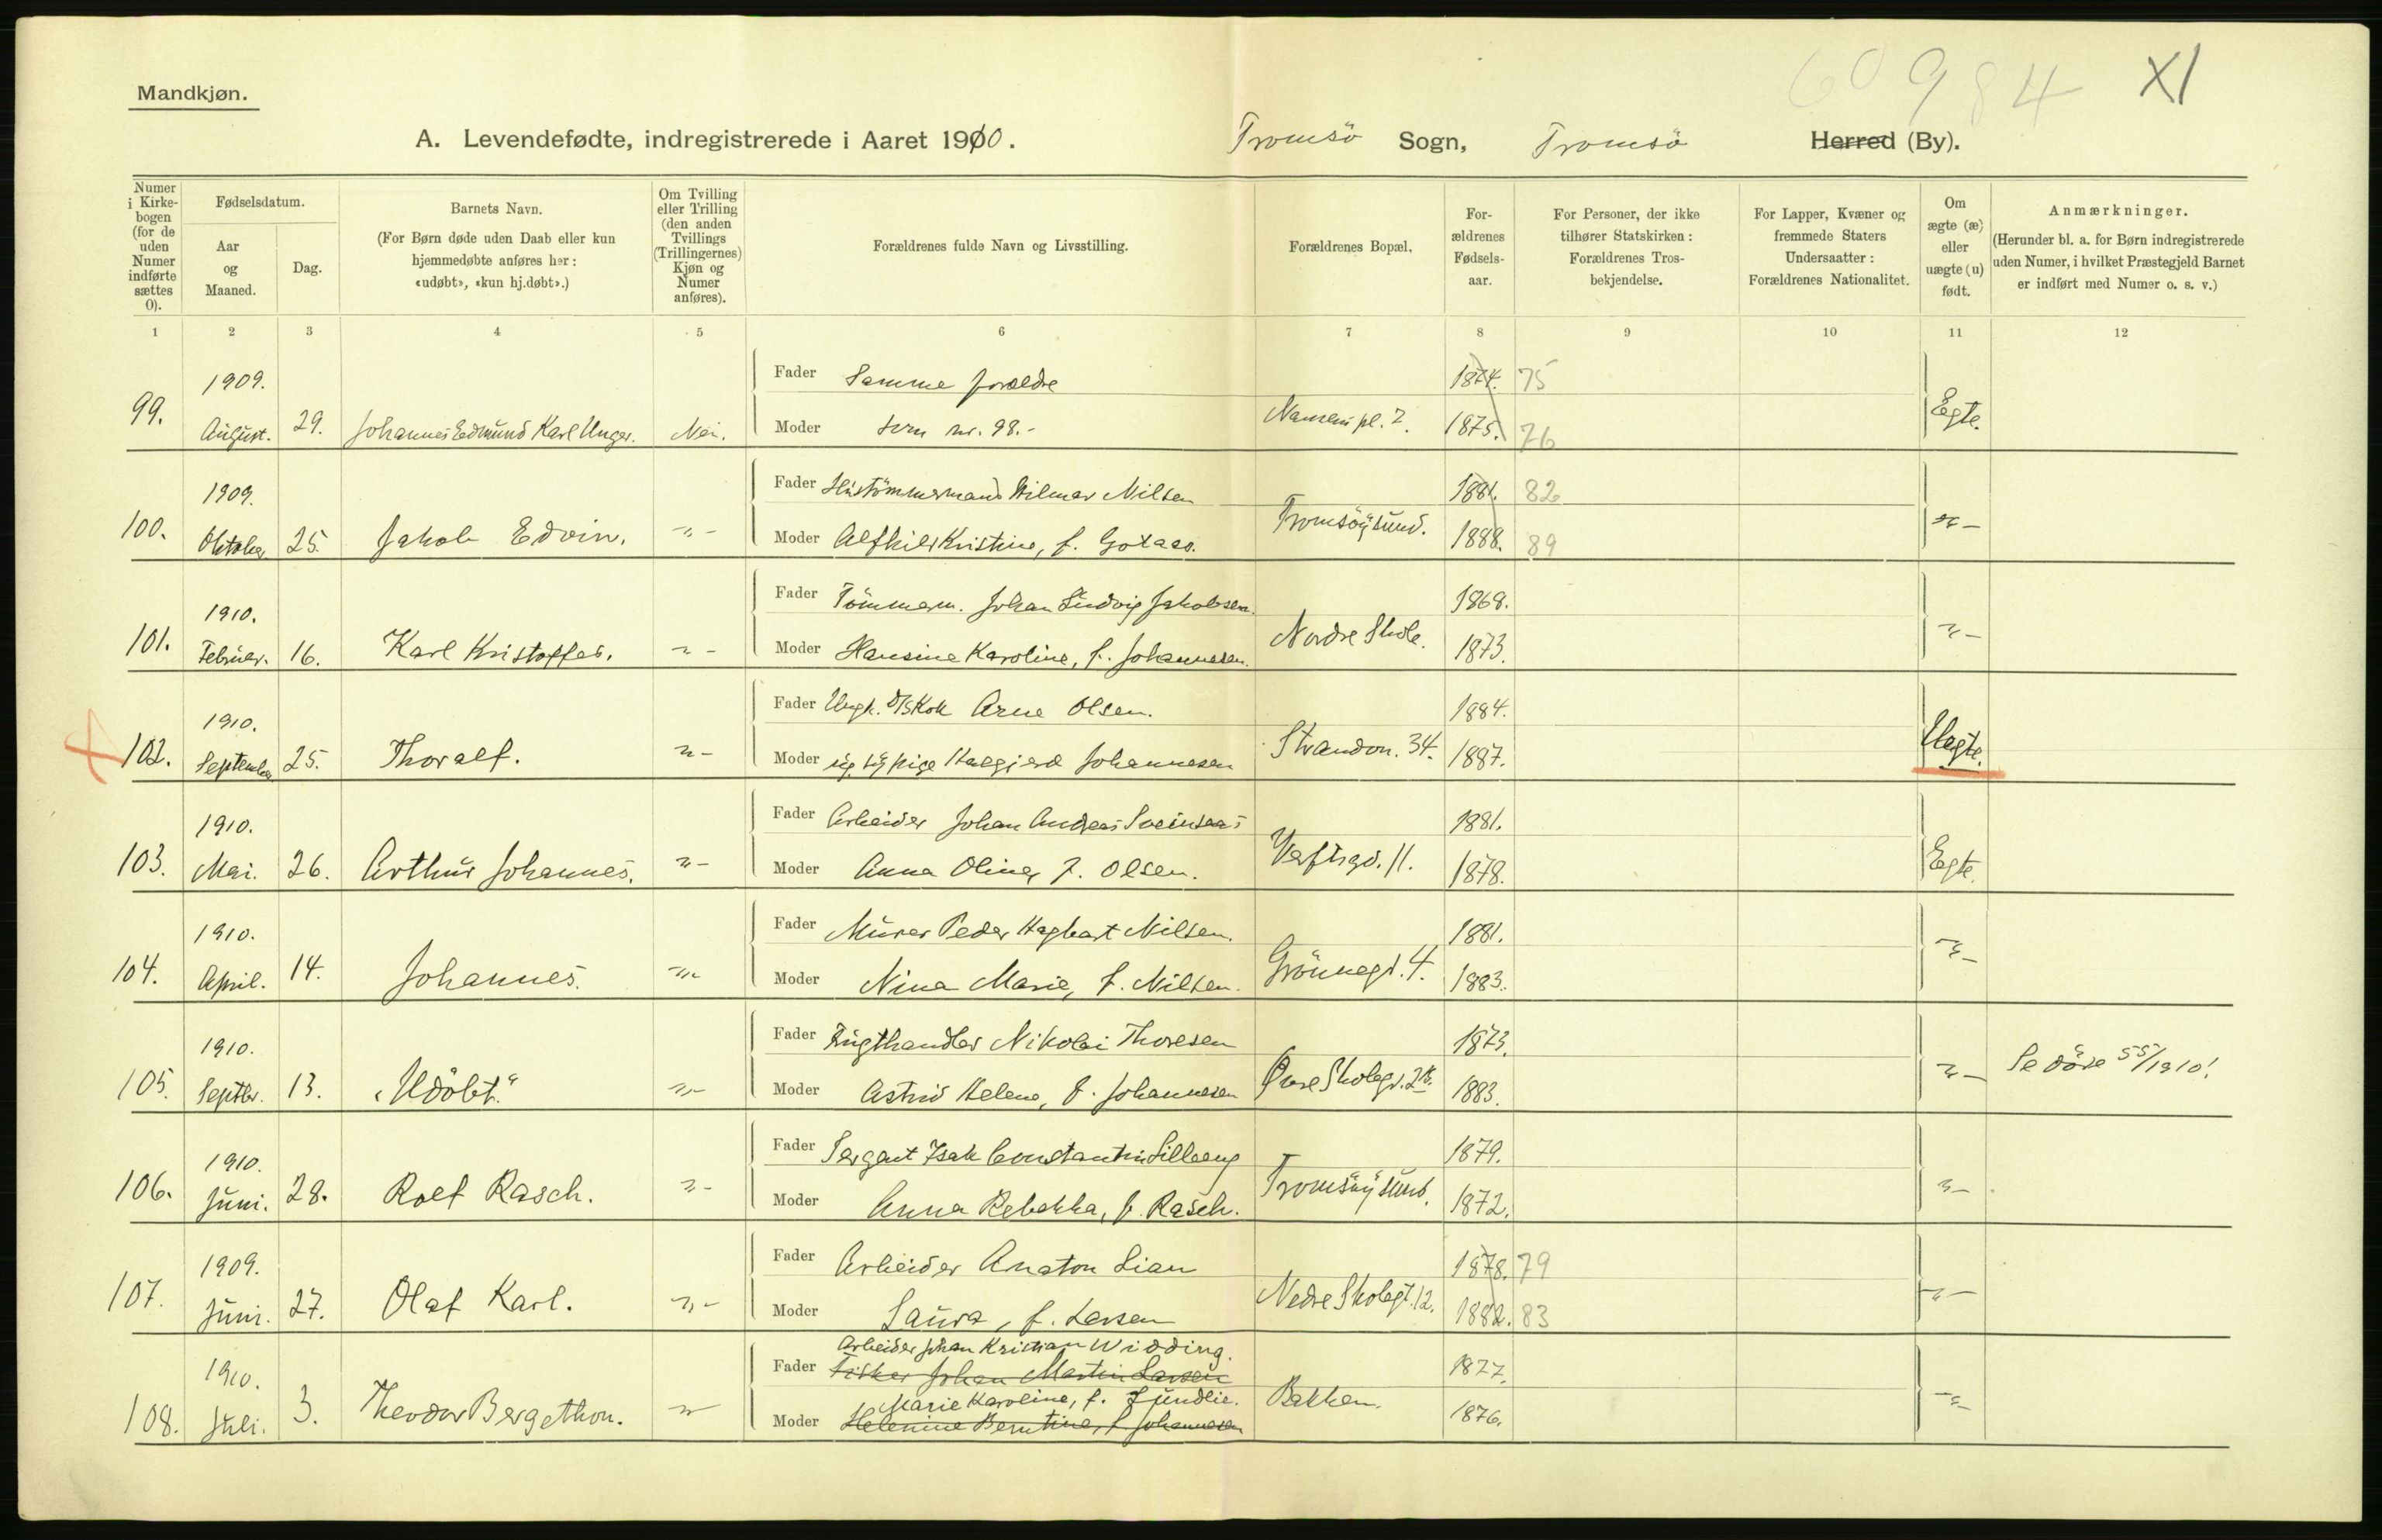 60984 XI
Mandkjøn.
A. Levendefødte, indregistrerede i Aaret 1910. Tromsö Sogn, Tromsö Herred (By).
Numer i Kirkebogen (for de uden Numer indførte sættes 0).
Fødselsdatum.
Aar og Maaned.
Dag.
Barnets Navn.
(For Børn døde uden Daab eller kun hjemmedøbte anføres her: «udøbt», «kun hj.døbt».)
Om Tvilling eller Trilling (den anden Tvillings (Trillingernes) Kjøn og Numer anføres).
Forældrenes fulde Navn og Livsstilling.
Forældrenes Bopæl.
Forældrenes Fødselsaar.
For Personer, der ikke tilhører Statskirken: Forældrenes Trosbekjendelse.
For Lapper, Kvæner og fremmede Staters Undersaatter: Forældrenes Nationalitet.
Om ægte (æ) eller uægte (u) født.
Anmærkninger.
(Herunder bl. a. for Børn indregistrerede uden Numer, i hvilket Præstegjeld Barnet er indført med Numer o. s. v.)
1 2 3 4 5 6 7 8 9 10 11 12
1909. Fader Samme forældre 1874. 75
99. August. 29. Johannes Edmund Karl Unger. Nei. Moder som nr. 98.- Nansens pl. 7. 1875. 76 Egte.
1909. Fader Hustömmermand Hilmar Nilsen 1881. 82
100. Oktober 25. Jakob Edvin. -"- Moder Alfhild Kristine, f. Tromsöysund. 1888. 89 -"-
1910. Fader Tömmerm. Johan Ludvig Jakobsen. 1868.
101. Februar. 16. Karl Kristoffer. -"- Moder Hansine Karoline, f. Johannesen. Nordre Skole. 1873. -"-
1910. Fader Ungk. D/S Kok Arne Olsen. 1884.
102. September 25. Thoralf. -"- Moder Johannesen Strandv. 34. 1887. Uegte.
1910. Fader Arbeider Johan Andreas 1881.
103. Mai. 26. Arthur Johannes. -"- Moder Anna Oline, f. Olsen. Verftsgd. 11. 1878. Egte.
1910. Fader Murer Peder Hagbart Nilsen. 1881.
104. April. 14. Johannes. -"- Moder Nina Marie, f. Nilsen. Grönnegd. 4. 1883. -"-
1910. Fader Frugthandler Nikolai Thoresen 1873.
105. Septbr. 13. "Udöbt." -"- Moder Astrid Helene, f. Johannesen Øvre Skolegd. 1883. -"- Se döde 55/1910!
1910. Fader Sergent Isak Constantin 1879.
106. Juni. 28. Rolf Rasch. -"- Moder Anna Rebekka, f. Rasch. Tromsöysund. 1872. -"-
1909. Fader Arbeider Anaton Lian 1878. 79
107. Juni. 27. Olaf Karl. -"- Moder Laura, f. Larsen Nedre Skolegt. 12. 1882. 83 -"-
Arbeider Johan Kristian Widding.
1910. Fader Fisker Johan Martin Larsen 1877.
Marie Karoline, f. Lundlie.
108. Juli. 3. Theodor Bergethon. -"- Moder Helenine Berntine, f. Johannesen Bakken. 1876. -"-